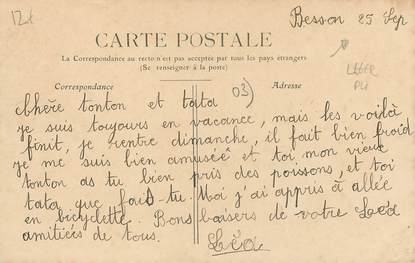 12€
Besson 25 Sep
CARTE POSTALE
La Correspondance au recto n'est pas acceptée par tous les pays étrangers
(Se renseigner à la poste)
LEGER
PLI
Correspondance
Adresse
03)
chère tonton et tata
je suis toujours en vacance, mais les voilà
finit, je rentre dimanche, il fait bien froid
je me suis bien amusée et toi mon vieux
tonton as tu bien pris des poissons, et toi
tata que fait-tu. Moi j'ai appris à allée
en bicyclette. Bons baisers de votre Léa
amitiées de tous.
Léa